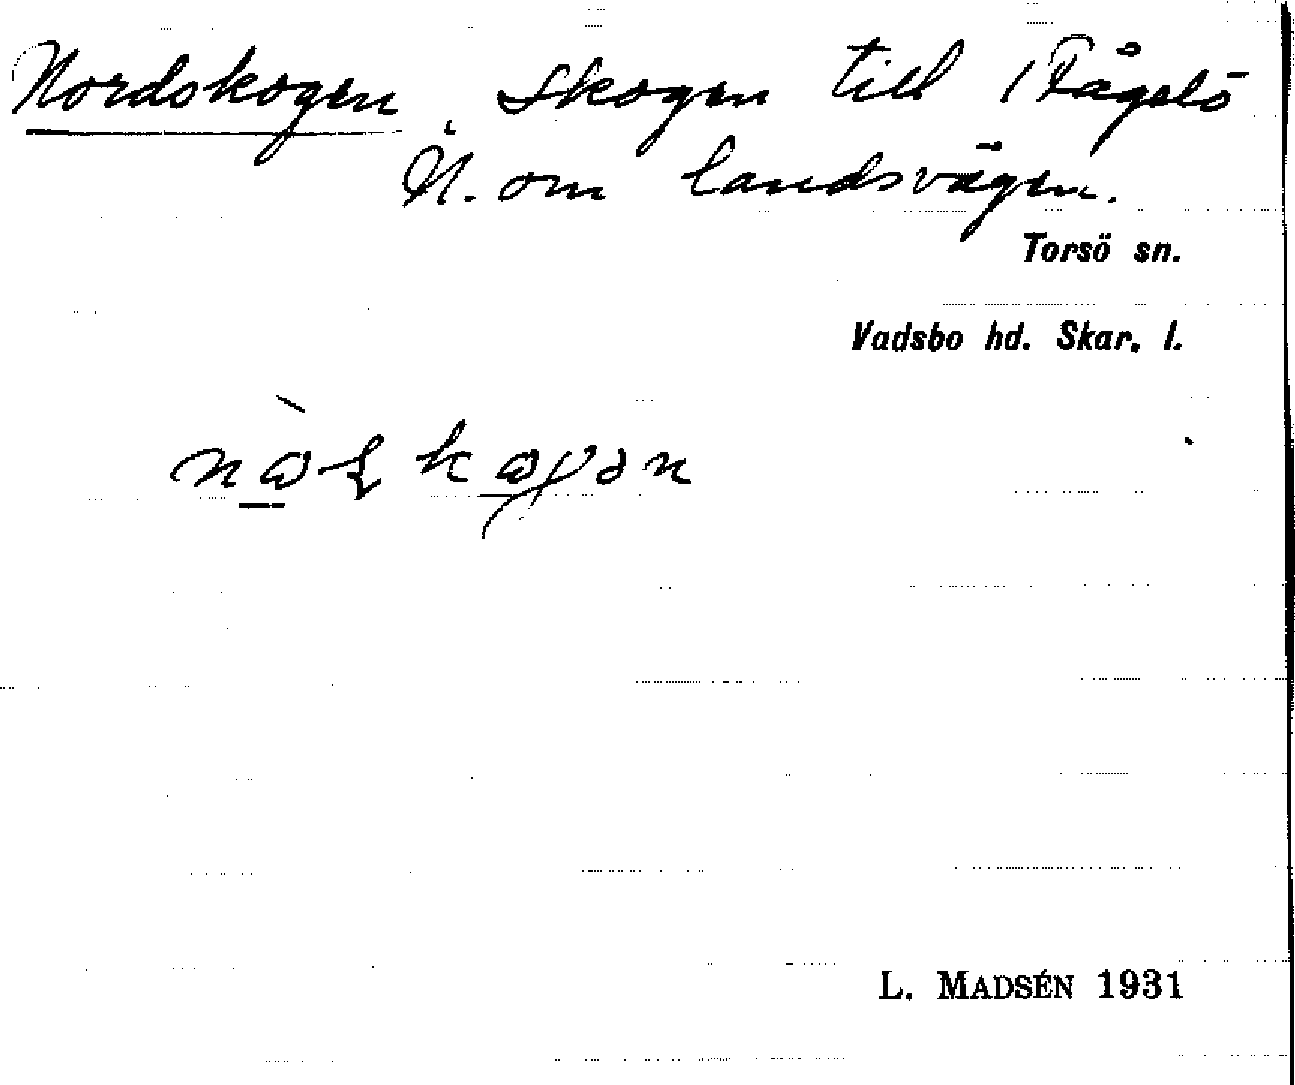 Nordskogen, Skogen till 1 Fågelö
N. om landsvägen.
Torsö sn.
Vadsbo hd. Skar. l.
L. MADSÉN 1931